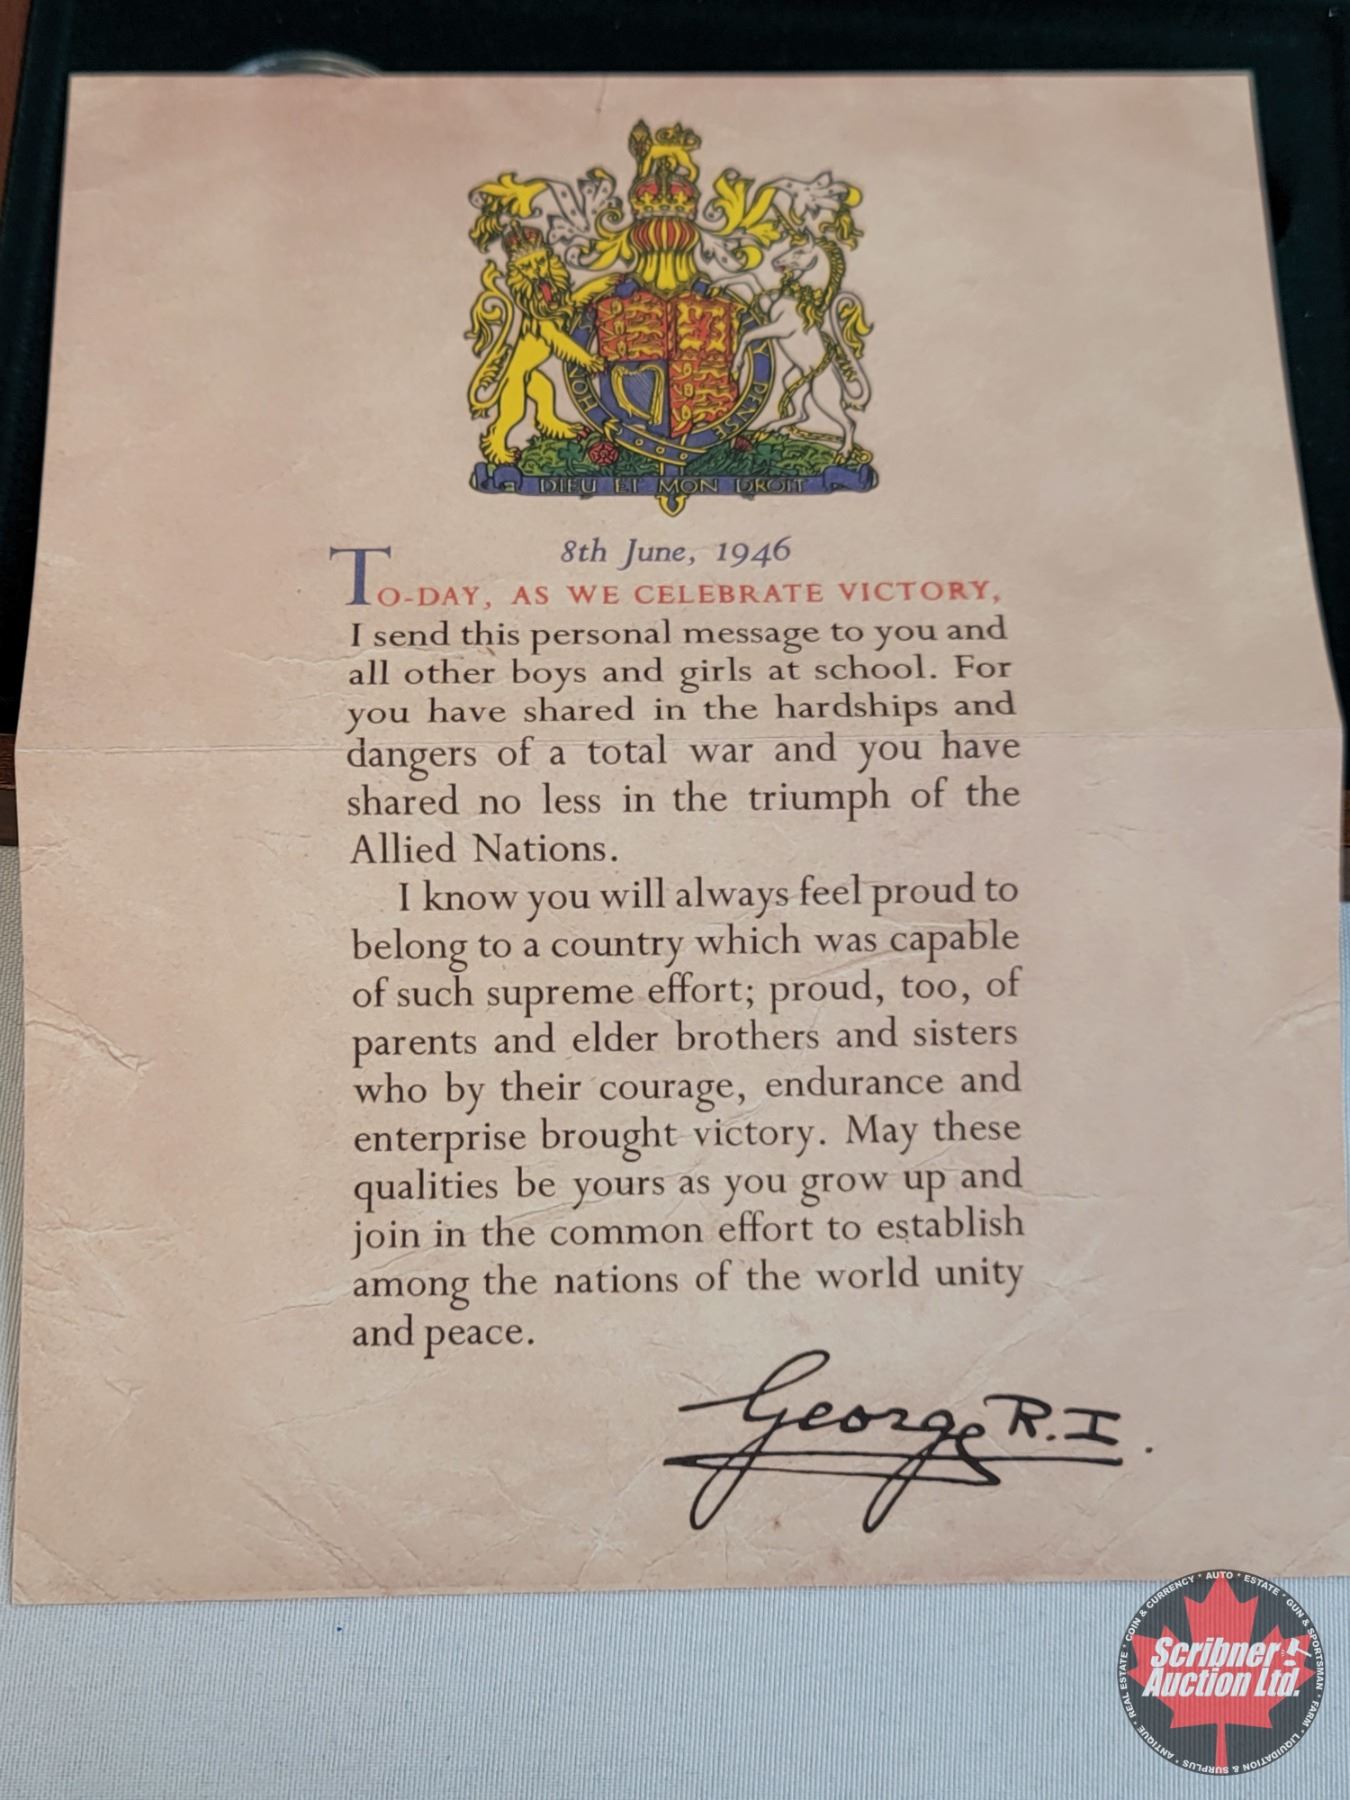 HON
Y PENSE
DIEU ET MON DROIT
8th June, 1946
TO-DAY, AS WE CELEBRATE VICTORY,
I send this personal message to you and
all other boys and girls at school. For
you have shared in the hardships and
dangers of a total war and you have
shared no less in the triumph of the
Allied Nations.
I know you will always feel proud to
belong to a country which was capable
of such supreme effort; proud, too, of
parents and elder brothers and sisters
who by their courage, endurance and
enterprise brought victory. May these
qualities be yours as you grow up and
join in the common effort to establish
among the nations of the world unity
and peace.
George R.I.
Scribner
Auction Ltd.
REAL ESTATE • COIN & CURRENCY • AUTO • ESTATE • GUN & SPORTSMAN • FARM • LIQUIDATION & SURPLUS • ANTIQUE •